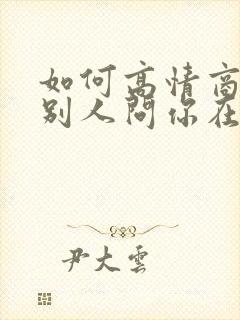 如何高情商
别人问你在
尹大云